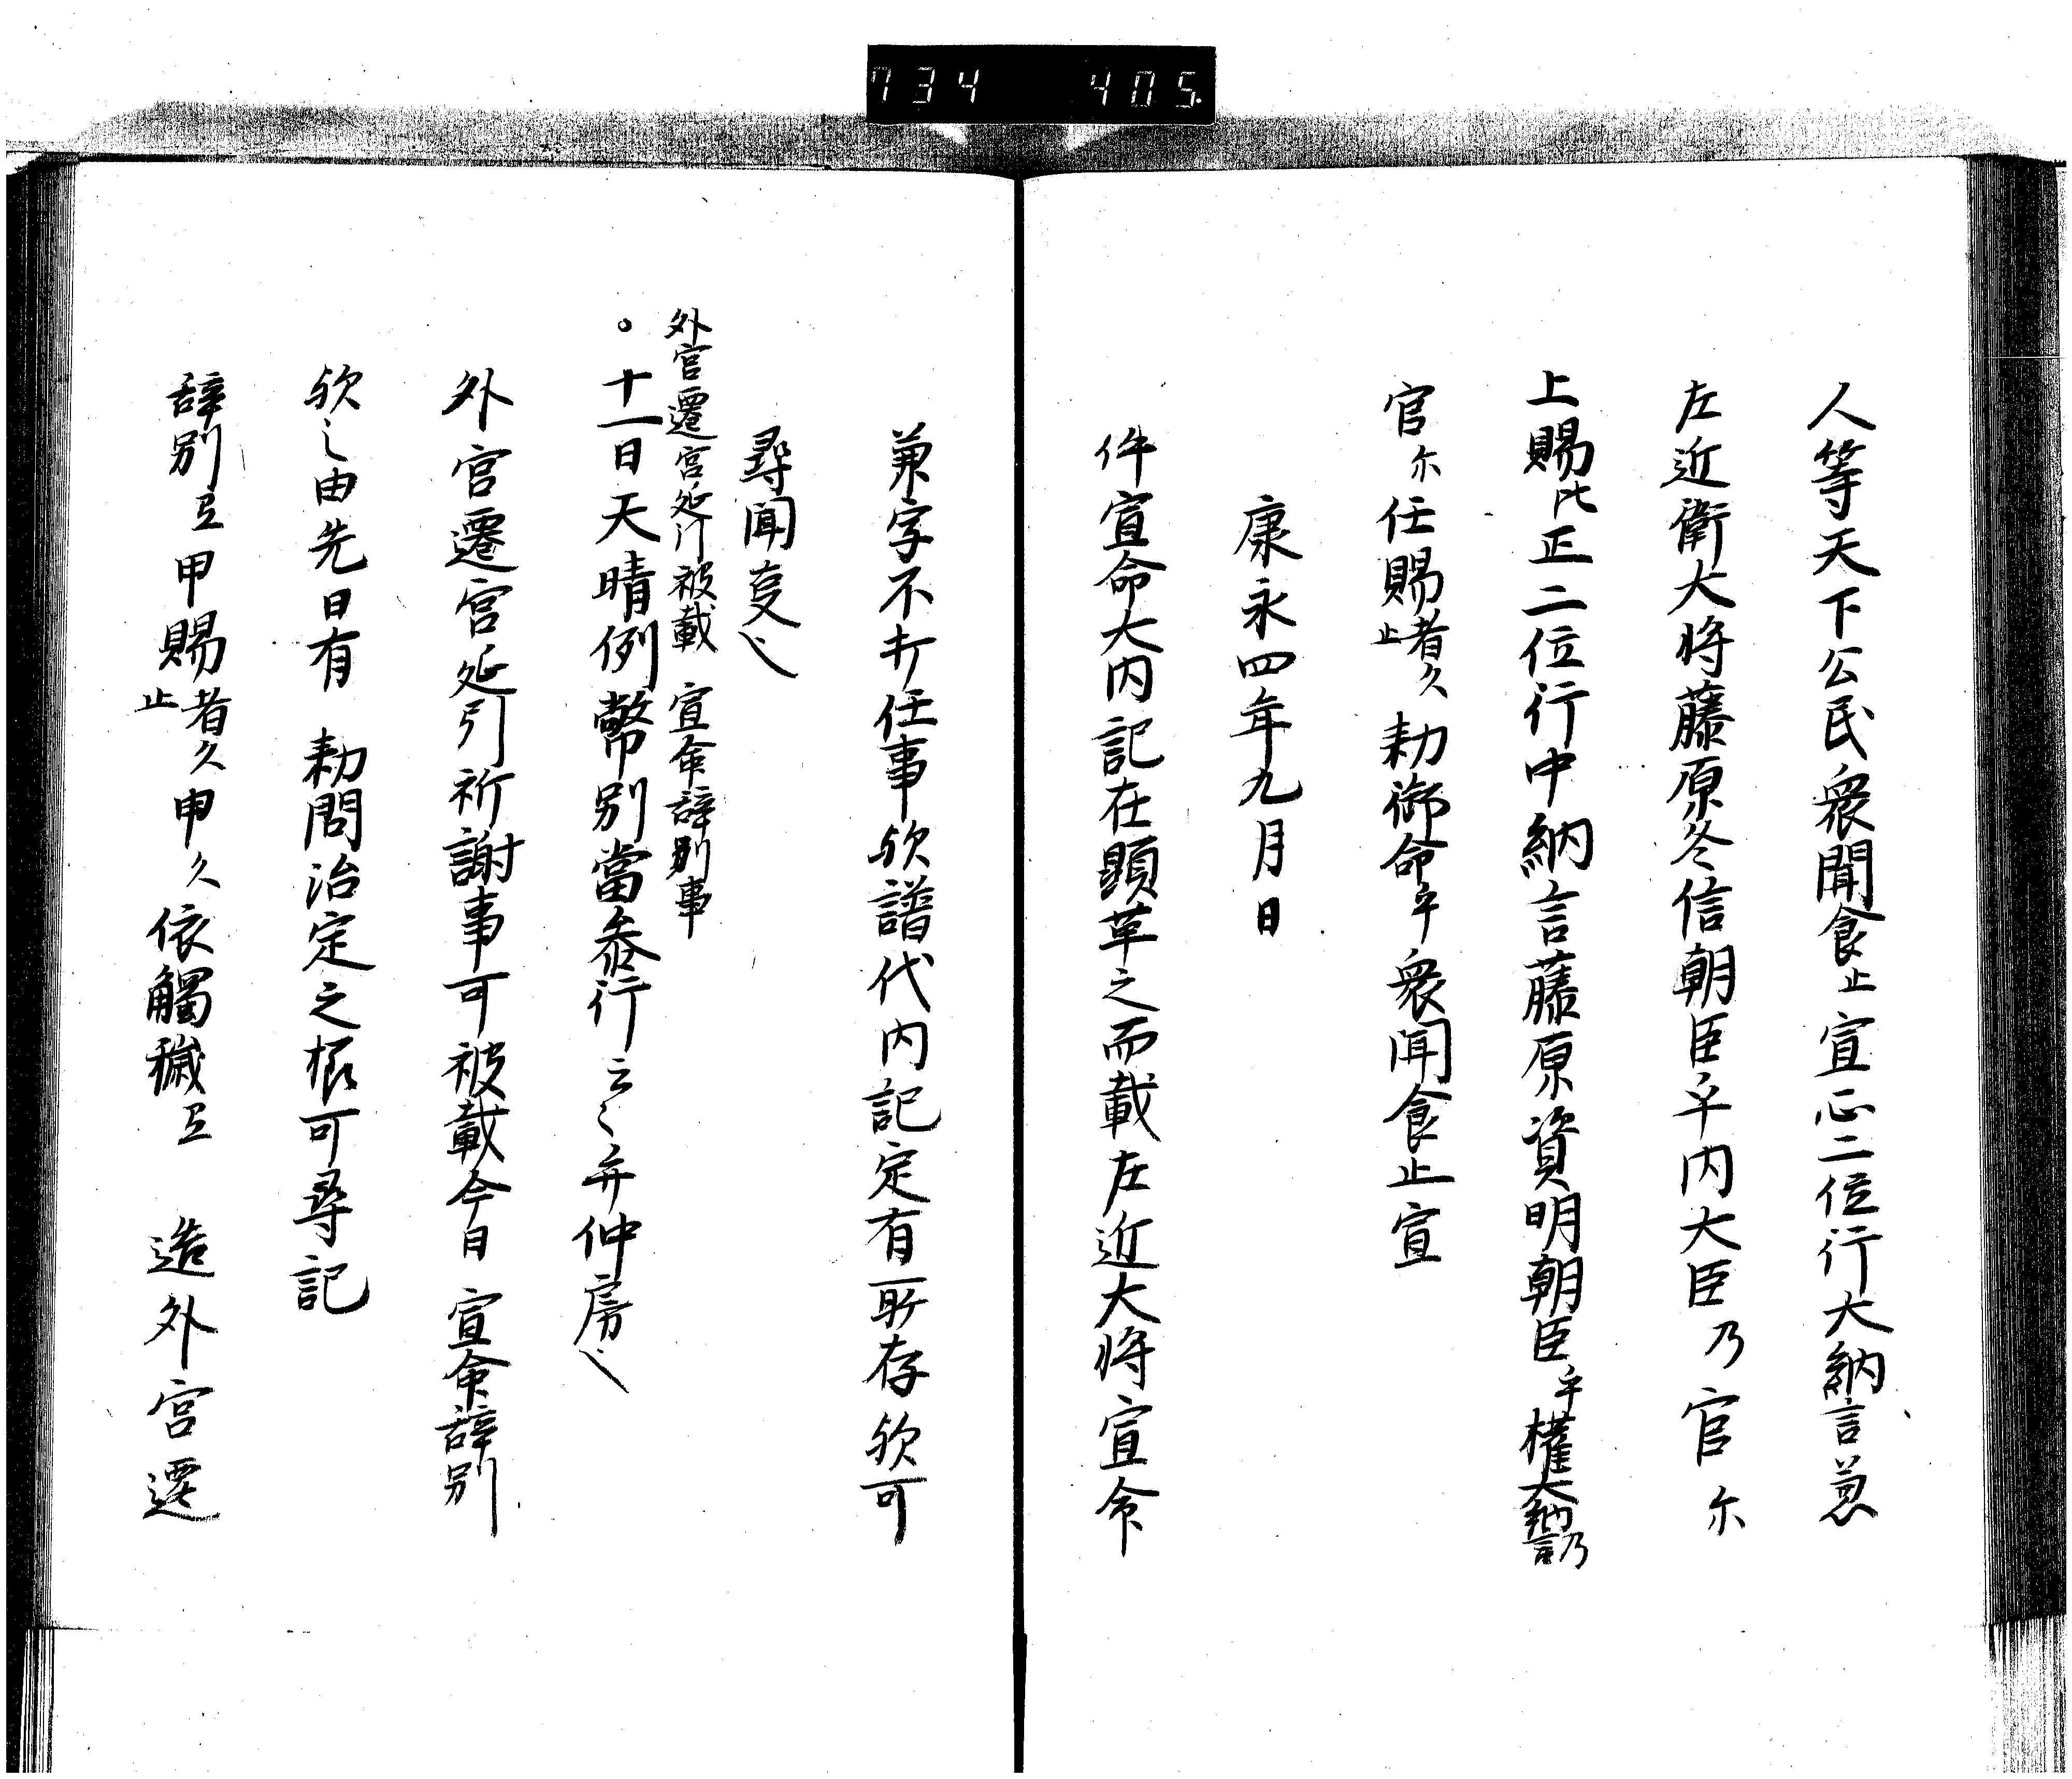 734 405
人等天下公民衆聞食止宣正二位行大納言兼
左近衛大将藤原冬信朝臣乎内大臣乃官尓
上賜比正二位行中納言藤原資明朝臣乎権大納言乃
官尓任賜者久止勅御命乎衆聞食止宣
康永四年九月日
件宣命大内記在顕草之而載左近大将宣命
兼字不打任事欤譜代内記定有所存欤可
尋聞事也
外宮遷宮延引被載宣命辞別事
○十一日天晴例幣別當参行云々弁仲房也
外宮遷宮延引祈謝事可被載今日宣命辞別
欤之由先日有勅問治定之様可尋記
辞別弖申賜者久止申久依觸穢弖造外宮遷